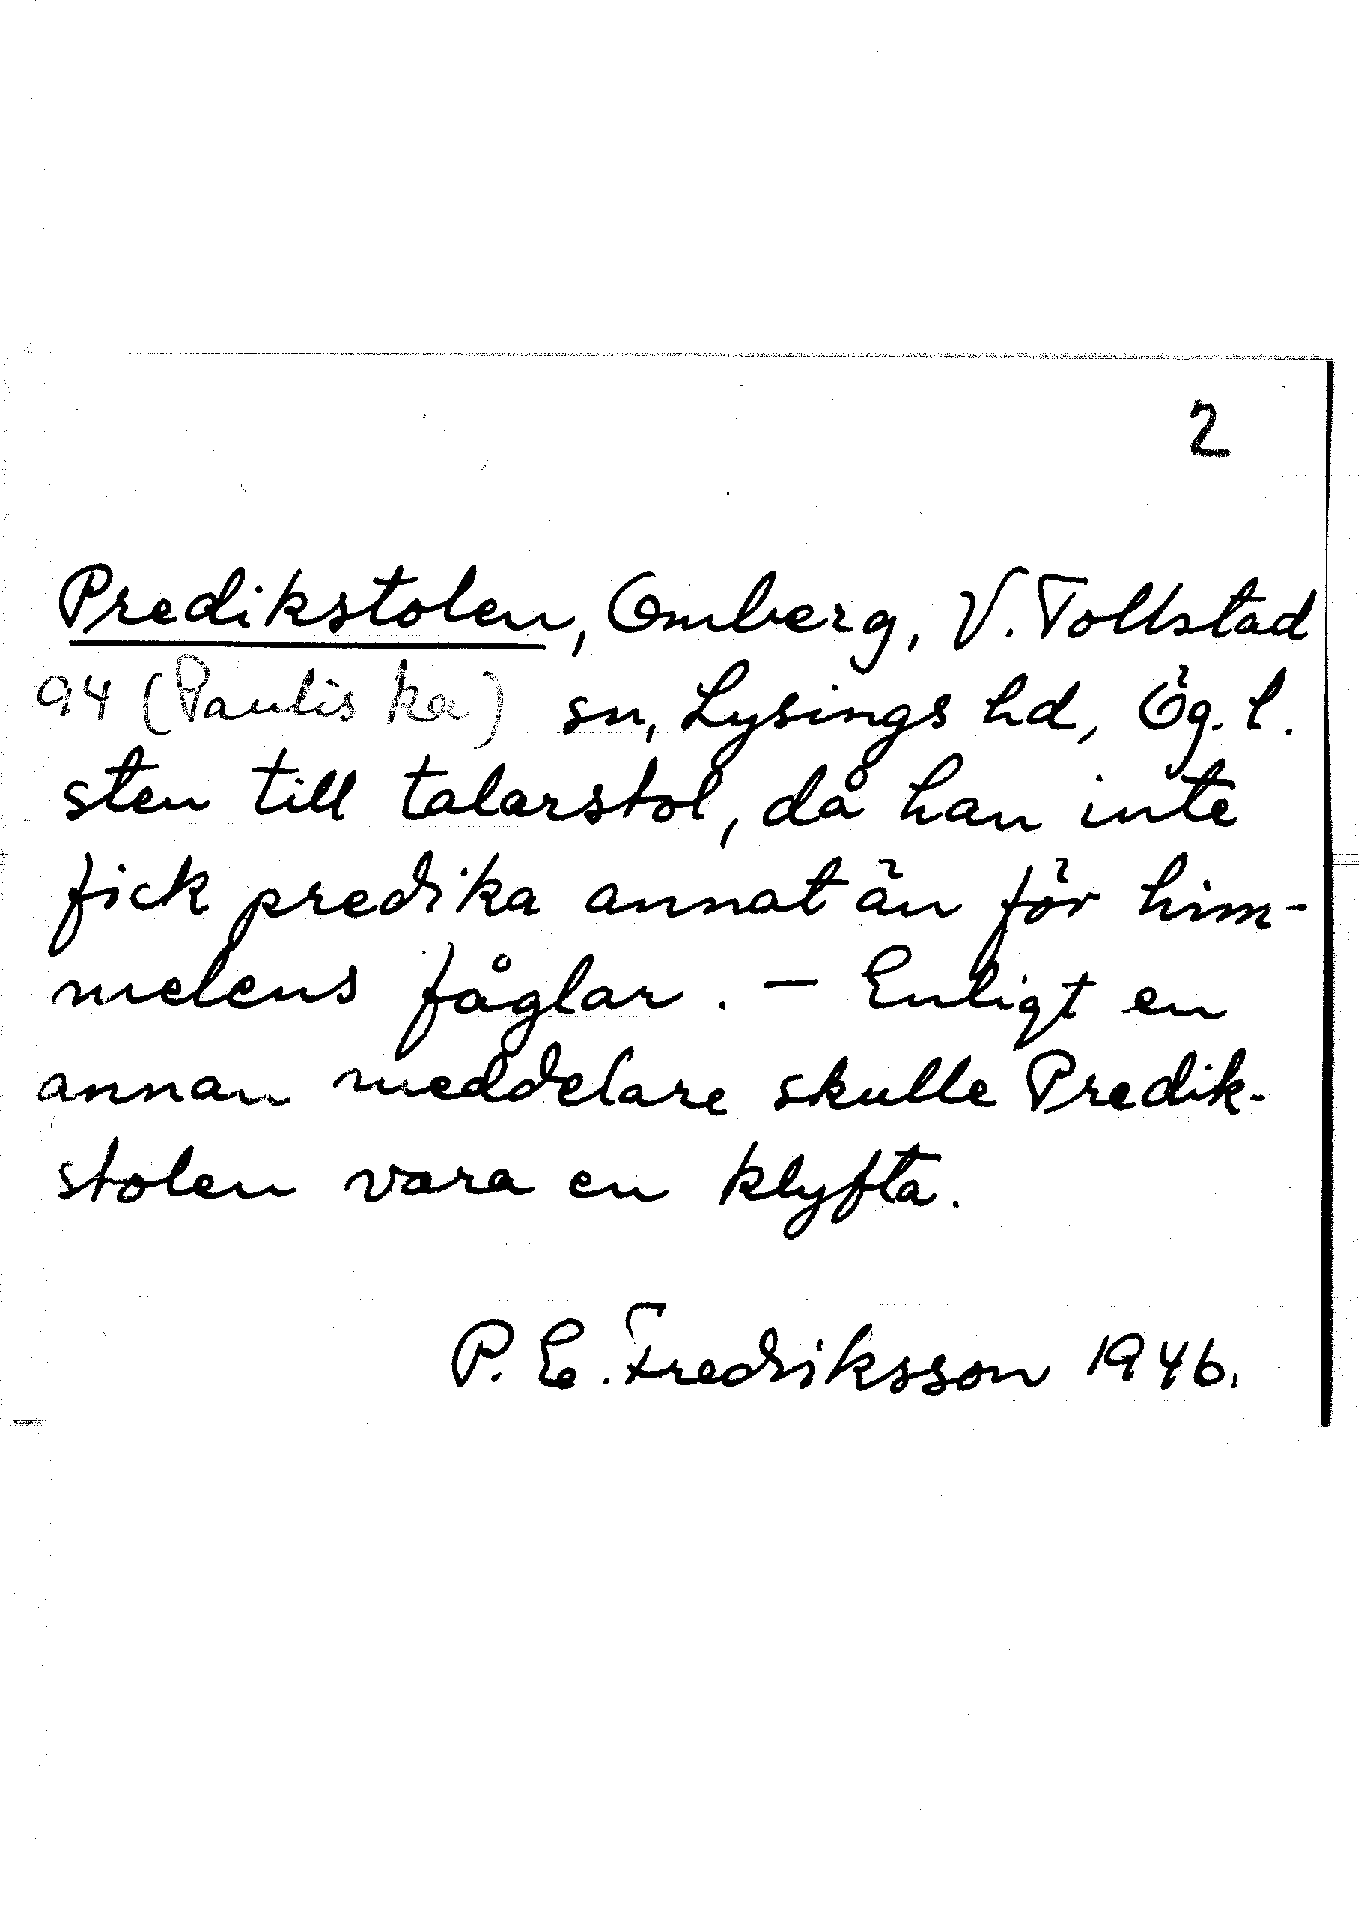 2
Predikstolen, Omberg, V. Tollstad
94 (Paulis ka) sn, Lysings hd, Ög. l.
sten till talarstol, då han inte
fick predika annat än för him-
melens fåglar. – Enligt en
annan meddelare skulle Predik-
stolen vara en klyfta.
P. E. Fredriksson 1946.